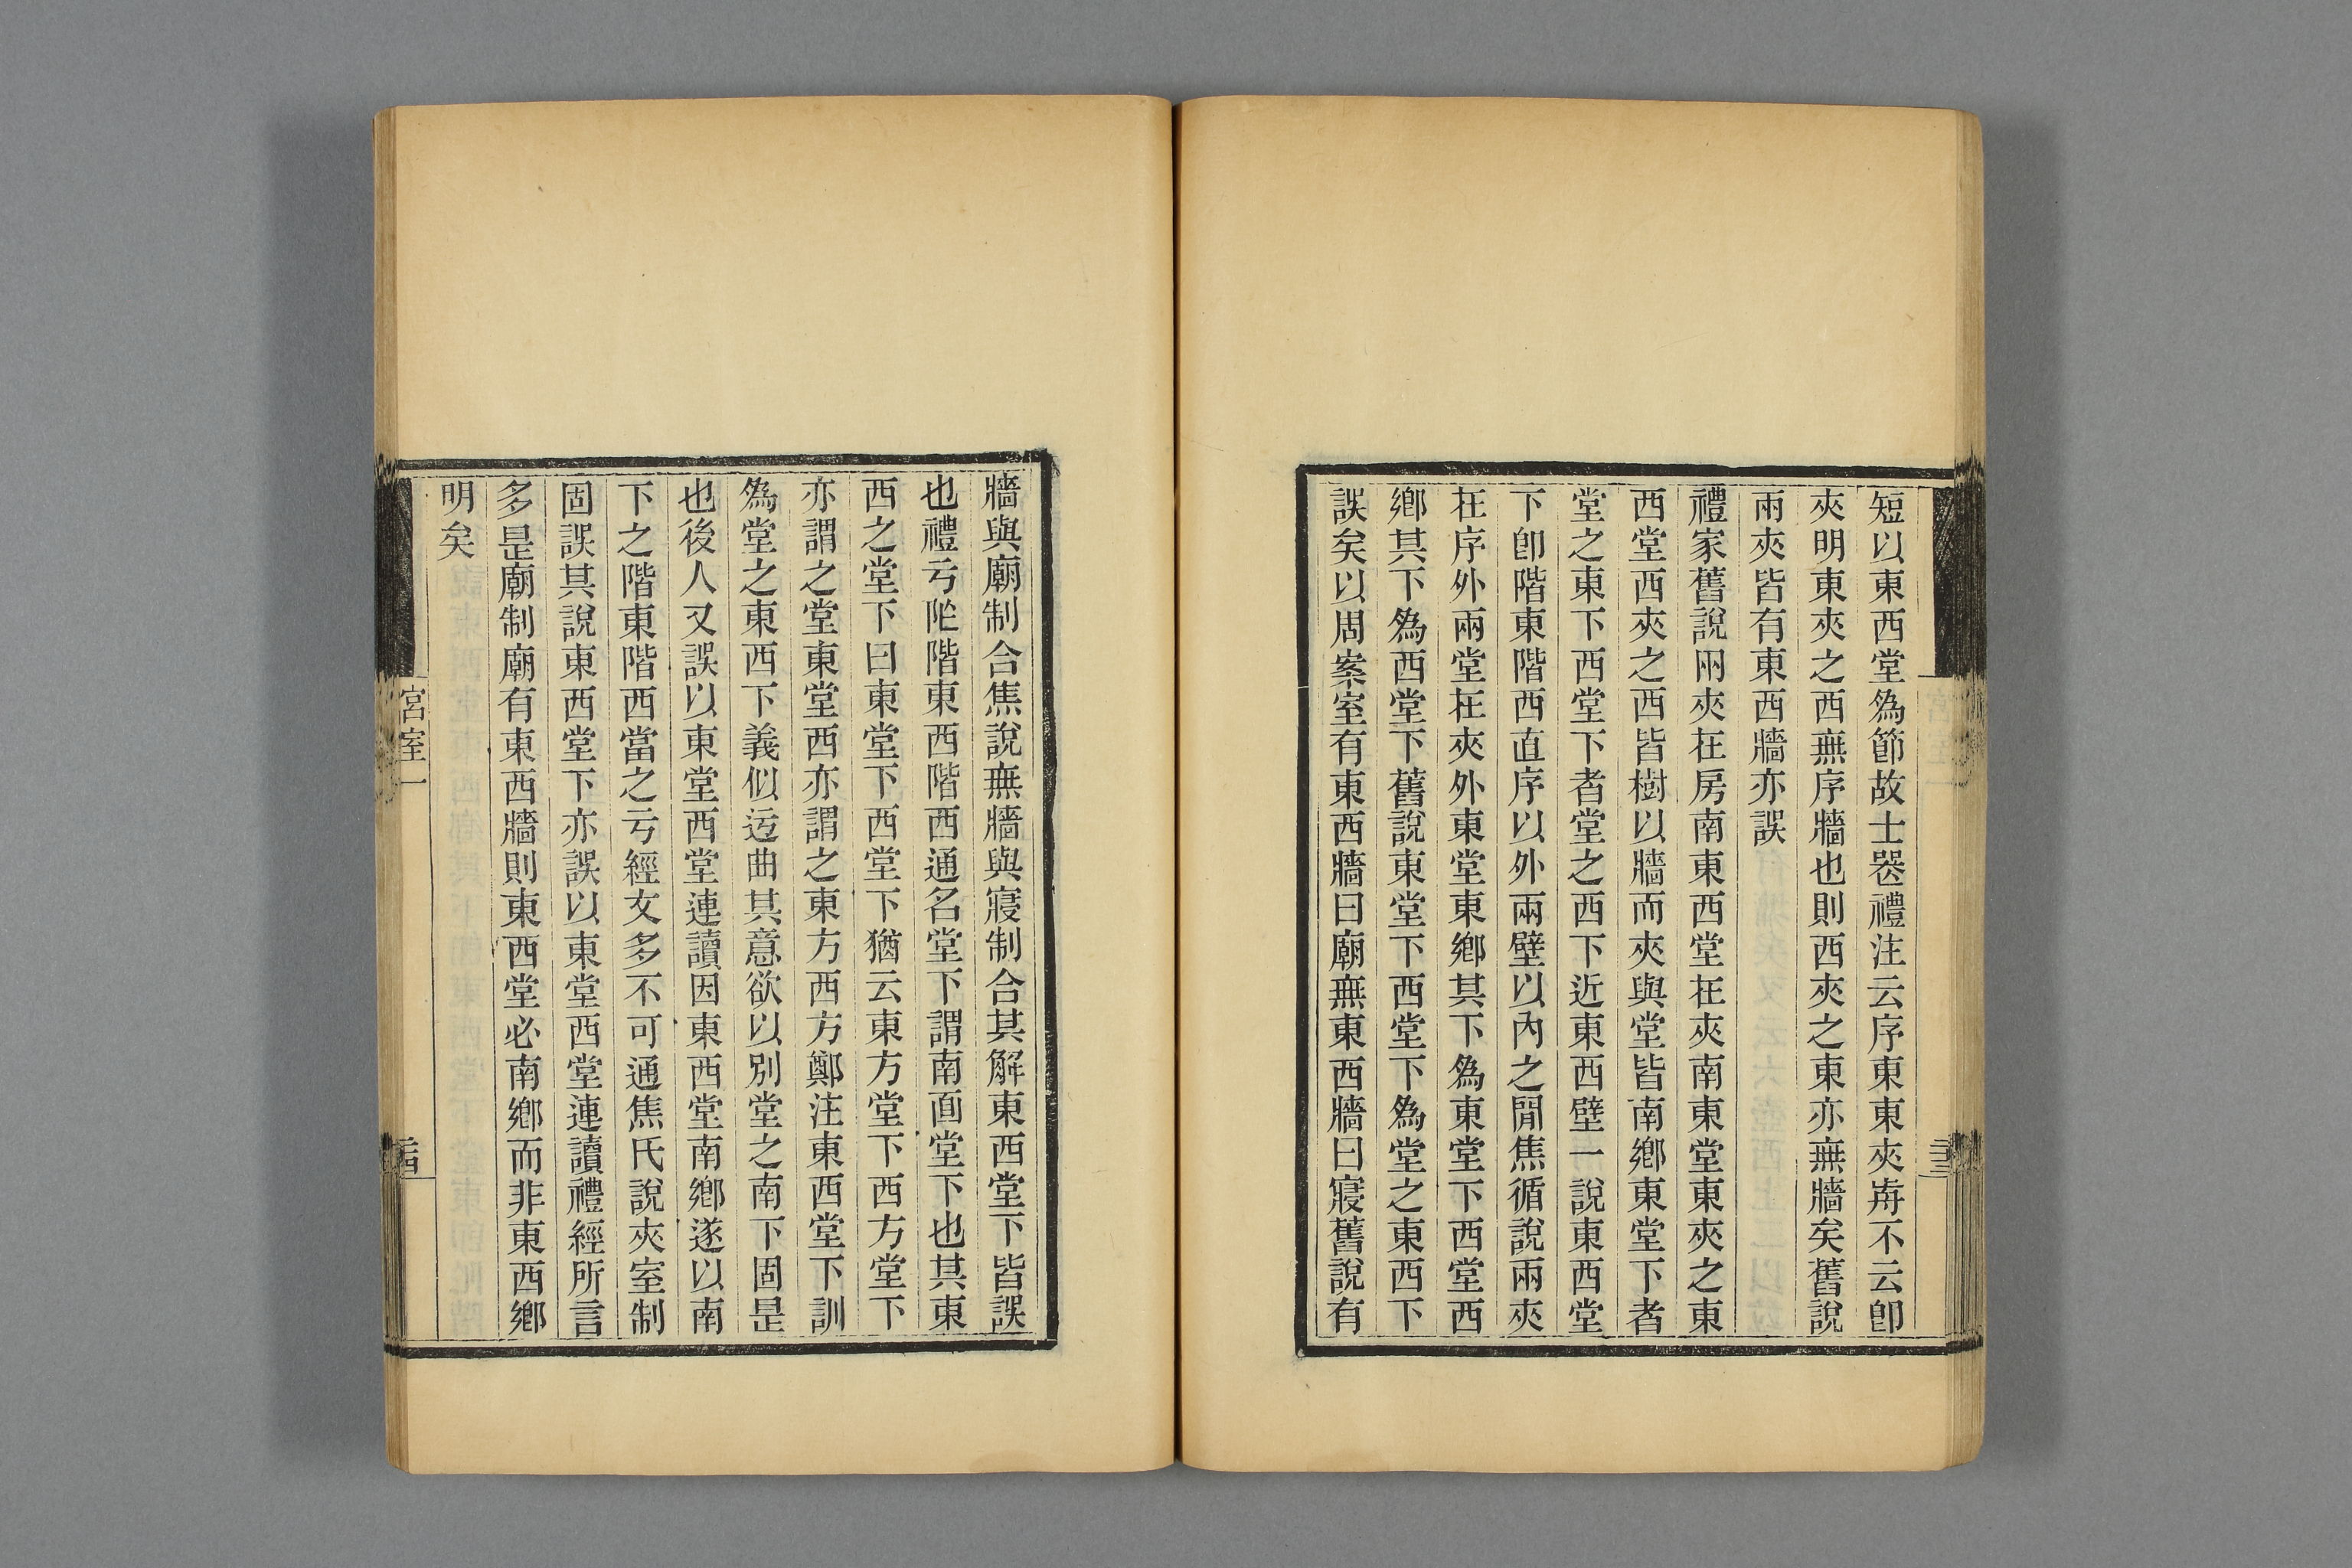 短以東西堂爲節故士器禮注云序東東夾歬不云卽
夾明東夾之西無序牆也則西夾之東亦無牆矣舊說
兩夾皆有東西牆亦誤
禮家舊說兩夾在房南東西堂在夾南東堂東夾之東
西堂西夾之西皆樹以牆而夾與堂皆南鄉東堂下者
堂之東下西堂下者堂之西下近東西壁一說東西堂
下卽階東階西直序以外兩壁以內之閒焦循說兩夾
在序外兩堂在夾外東堂東鄉其下爲東堂下西堂西
鄉其下爲西堂下舊說東堂下西堂下爲堂之東西下
誤矣以周案室有東西牆曰廟無東西牆曰寢舊說有
牆與廟制合焦說無牆與寢制合其解東西堂下皆誤
也禮亏阼階東西階西通名堂下謂南面堂下也其東
西之堂下曰東堂下西堂下猶云東方堂下西方堂下
亦謂之堂東堂西亦謂之東方西方鄭注東西堂下訓
爲堂之東西下義似迃曲其意欲以別堂之南下固是
也後人又誤以東堂西堂連讀因東西堂南鄉遂以南
下之階東階西當之亏經文多不可通焦氏說夾室制
固誤其說東西堂下亦誤以東堂西堂連讀禮經所言
多是廟制廟有東西牆則東西堂必南鄉而非東西鄉
明矣
宮室一